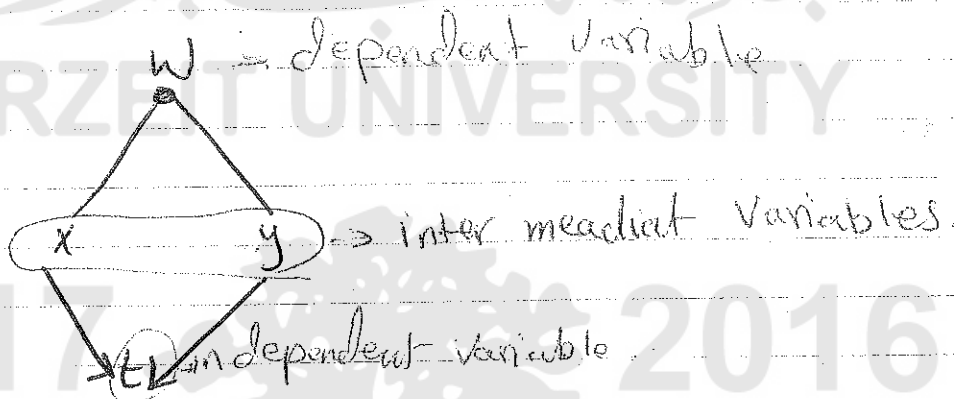 W → dependent Variable
RZEIT UNIVERSITY
x y → inter meadiat Variables.
17 2016
t → independent variable.